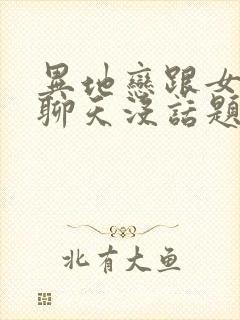 異地戀跟女
聊天沒話題
北有大鱼